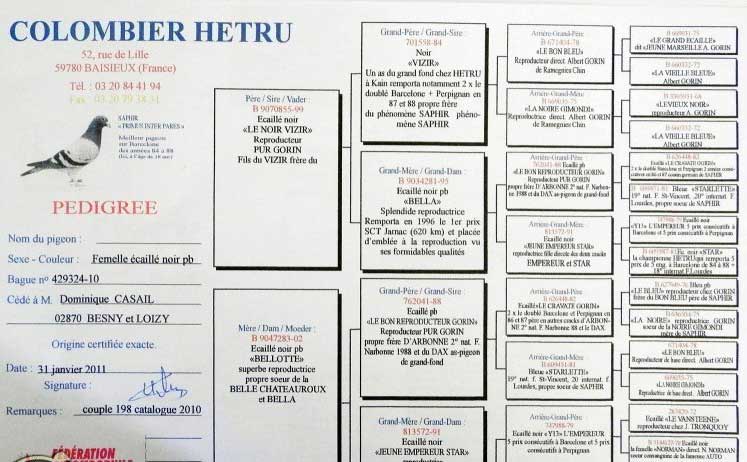 COLOMBIER HETRU
52, rue de Lille
59780 BAISIEUX (France)
Tél. : 03 20 84 41 94
Fax : 03 20 79 38 31
SAPHIR
« PRIMUS INTER PARES »
Meilleur pigeon
sur Barcelone
des années 84 à 88
PEDIGREE
Nom du pigeon :
Sexe - Couleur : Femelle écaillé noir pb
Bague n° 429324-10
Cédé à M. Dominique CASAIL
02870 BESNY et LOIZY
Origine certifiée exacte.
Date : 31 janvier 2011
Signature :
Remarques : couple 198 catalogue 2010
FÉDÉRATION
Père / Sire / Vader
B 9070855-99
Ecaillé noir
«LE NOIR VIZIR»
Reproducteur
PUR GORIN
Fils du VIZIR frère du
Mère / Dam / Moeder :
B 9047283-02
Ecaillé noir pb
«BELLOTTE»
superbe reproductrice
propre soeur de la
BELLE CHATEAUROUX
et BELLA
Grand-Père / Grand-Sire :
701558-84
Noir
«VIZIR»
Un as du grand fond chez HETRU
à Kain remporta notamment 2 x le
doublé Barcelone + Perpignan en
87 et 88 propre frère
du phénomène SAPHIR phéno-
mène SAPHIR
Grand-Mère / Grand-Dam :
B 9034281-95
Ecaillé noir pb
«BELLA»
Splendide reproductrice
Remporta en 1996 le 1er prix
SCT Jarnac (620 km) et placée
d'emblée à la reproduction vu
ses formidables qualités
Grand-Père / Grand-Sire :
762041-88
Ecaillé pb
«LE BON REPRODUCTEUR GORIN»
Reproducteur PUR GORIN
propre frère D'ARBONNE 2° nat. F.
Narbonne 1988 et du DAX as-pigeon
de grand-fond
Grand-Mère / Grand-Dam :
813572-91
Ecaillé noir
«JEUNE EMPEREUR STAR»
reproductrice
Arrière-Grand-Père
B 671404-78
«LE BON BLEU»
Reproducteur direct. Albert GORIN
de Ramegnies Chin
Arrière-Grand-Mère
B 669035-75
«LA NOIRE GIMONDI»
Reproductrice direct. Albert GORIN
de Ramegnies Chin
Arrière-Grand-Père
762041-88 Ecaillé pb
«LE BON REPRODUCTEUR GORIN»
Reproducteur PUR GORIN
propre frère D'ARBONNE 2° nat. F. Narbon-
ne 1988 et du DAX as-pigeon de grand-fond
Arrière-Grand-Mère
813572-91
Ecaillé noir
«JEUNE EMPEREUR STAR»
reproductrice fille directe des deux cracks
EMPEREUR et STAR
Arrière-Grand-Père
B 626448-82
Ecaillé«LE CRAVATE GORIN»
2 x le doublé Barcelone et Perpignan en
86 et 87 père en autres cracks d'ARBON-
NE 2° nat. F. Narbonne 88 et le DAX
Arrière-Grand-Père
B 609451-81
Bleue «STARLETTE»
19° nat. f. St-Vincent, 20° internat. f.
Lourdes, propre soeur de SAPHIR
Arrière-Grand-Père
747988-79
Ecaillé noir « Y13» L'EMPEREUR
5 prix consécutifs à Barcelone et 5 prix
consécutifs à Perpignan
B 669031-75
«LE GRAND ECAILLE»
dit «JEUNE MARSEILLE A. GORIN
B 660332-72
«LA VIEILLE BLEUE»
Albert GORIN
«LEVIEUX NOIR»
reproducteur A. GORIN
B 660332-72
«LA VIEILLE BLEUE»
Albert GORIN
B 626448-82
Ecaillé «LE CRAVATE GORIN»
B 609451-81 Bleue «STARLETTE»
19° nat. F. St-Vincent, 20° internat. F.
Lourdes, propre soeur de SAPHIR
747988-79 Ecaillé noir
«Y13» L'EMPEREUR 5 prix consécutifs à
Barcelone et 5 prix consécutifs à Perpignan
Ec. noir «STAR»
la championne HETRUqui remporta 5
prix de 5 eng. à Barcelone de 84 à 88 +
18° internat F.Lourdes
B 627949-76 Bleu pb
«LE BLEU» reproducteur chez GORIN
frère du BON BLEU père de SAPHIR
«LA NOIRE» reproductrice GORIN
soeur de la NOIRE GIMONDI
mère de SAPHIR
671404-78
«LE BON BLEU»
Reproducteur de base direct. Albert GORIN
669035-75
«LA NOIRE GIMONDI»
Reproductrice de base direct. Albert GORIN
Ecaillé «LE VANSTEENE»
reproducteur chez J. TRONQUOY
Ecaillé noir
la famelle «NORMAN» direct N. NORMAN
soeur consanguine de la fameuse AUTO